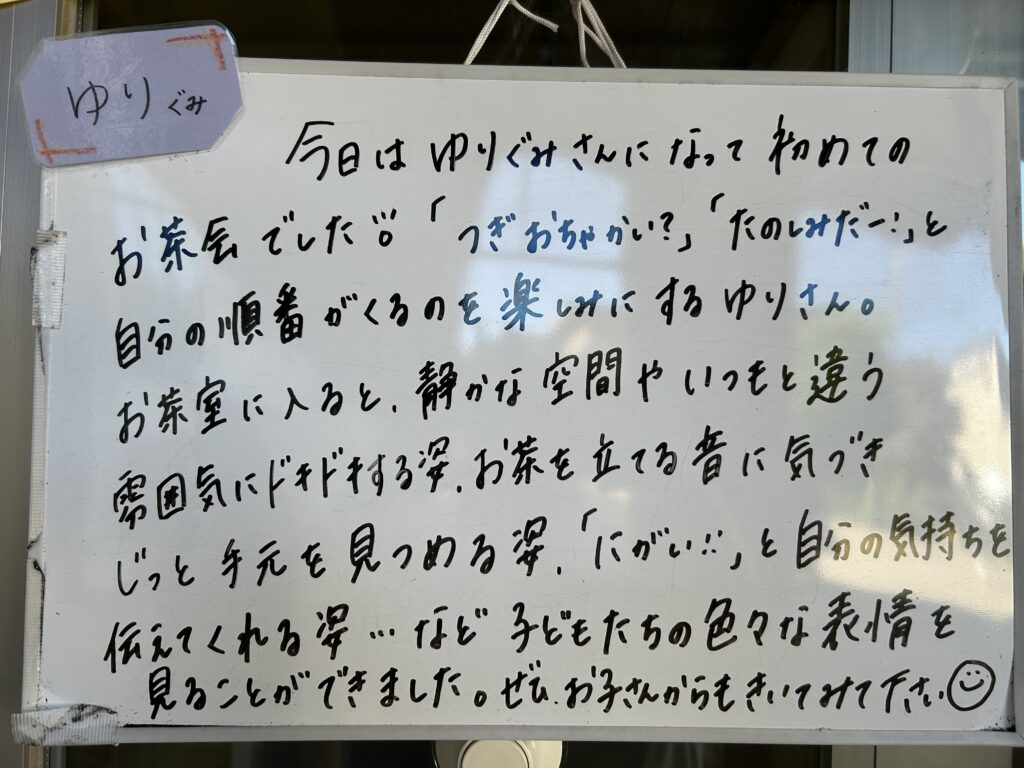 ゆりぐみ
今日はゆりぐみさんになって初めての
お茶会でした!!。「つぎおちゃかい?」「たのしみだー!」と
自分の順番がくるのを楽しみにするゆりさん。
お茶室に入ると、静かな空間やいつもと違う
雰囲気にドキドキする姿、お茶を立てる音に気づき
じっと手元を見つめる姿、「にがい!!」と自分の気持ちを
伝えてくれる姿…など子どもたちの色々な表情を
見ることができました。ぜひ、お子さんからもきいてみて下さい